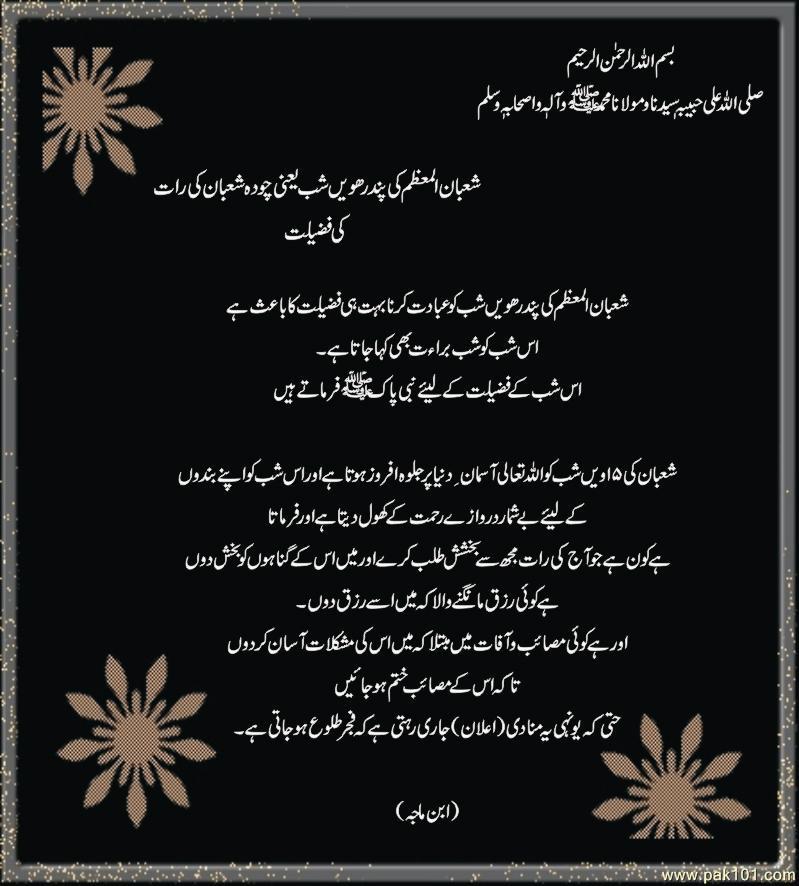 بسم اللہ الرحمٰن الرحیم
صلی اللہ علی حبیبہٖ سیدنا و مولانا محمد ﷺ وآلہٖ واصحابہٖ وسلم
شعبان المعظم کی پندرھویں شب یعنی چودہ شعبان کی رات
کی فضیلت
شعبان المعظم کی پندرھویں شب کو عبادت کرنا بہت ہی فضیلت کا باعث ہے
اس شب کو شب براءت بھی کہا جاتا ہے۔
اس شب کے فضیلت کے لیئے نبی پاک ﷺ فرماتے ہیں
شعبان کی ۱۵ویں شب کو اللہ تعالی آسمانِ دنیا پر جلوہ افروز ہوتا ہے اور اس شب کو اپنے بندوں
کے لیئے بے شمار دروازے رحمت کے کھول دیتا ہے اور فرماتا
ہے کون ہے جو آج کی رات مجھ سے بخشش طلب کرے اور میں اس کے گناہوں کو بخش دوں
ہے کوئی رزق مانگنے والا کہ میں اسے رزق دوں۔
اور ہے کوئی مصائب و آفات میں مبتلا کہ میں اس کی مشکلات آسان کردوں
تاکہ اس کے مصائب ختم ہو جائیں
حتی کہ یونہی یہ منادی (اعلان) جاری رہتی ہے کہ فجر طلوع ہو جاتی ہے۔
(ابن ماجہ)
www.pak101.com